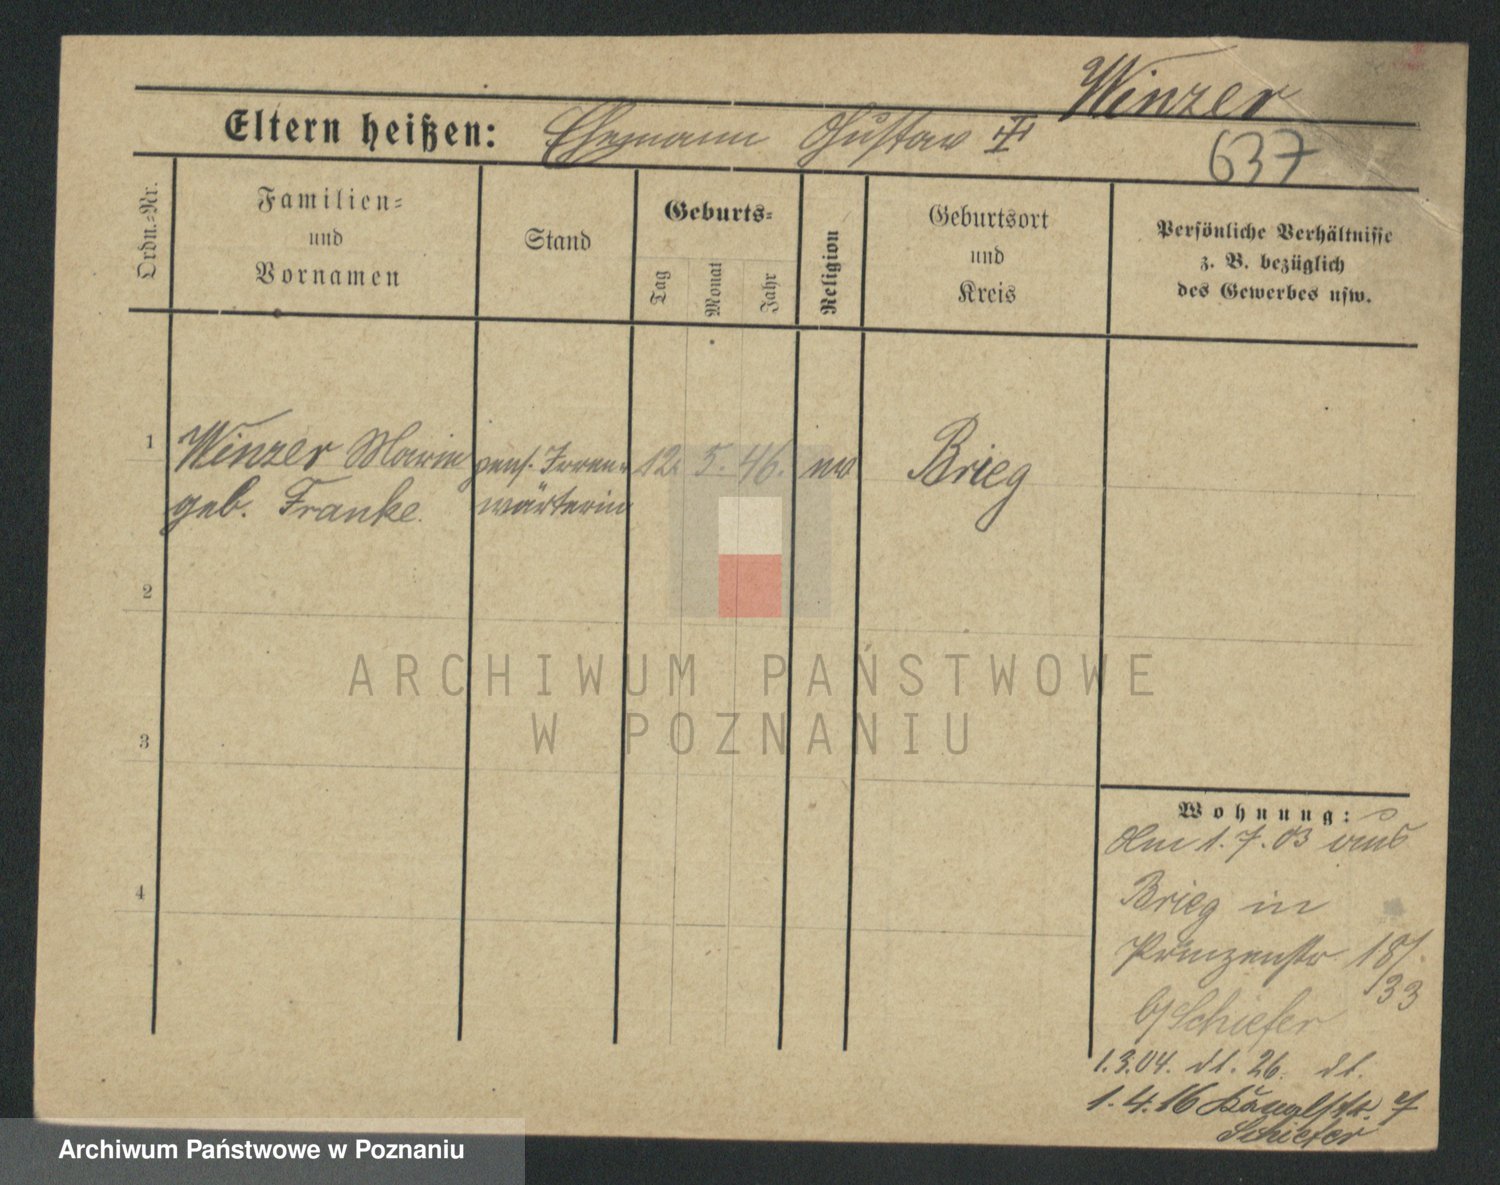 Winzer
Eltern heißen: Ehemann Gustav
637
Ordn.-Nr.
Familien-
und
Vornamen
Stand
Geburts-
Tag
Monat
Jahr
Religion
Geburtsort
und
Kreis
Persönliche Verhältnisse
z. B. bezüglich
des Gewerbes usw.
1
Winzer Marie
geb. Franke.
pens. Irren-
wärterin
12. 5. 46.
ev
Brieg
2
3
4
ARCHIWUM PAŃSTWOWE
W POZNANIU
Wohnung:
Am 1.7.03 aus
Brieg in
Prinzenstr 18/.
33
b/Schiefer
1.3.04. dt. 26. dt.
1.4.16 7
Schiefer
Archiwum Państwowe w Poznaniu